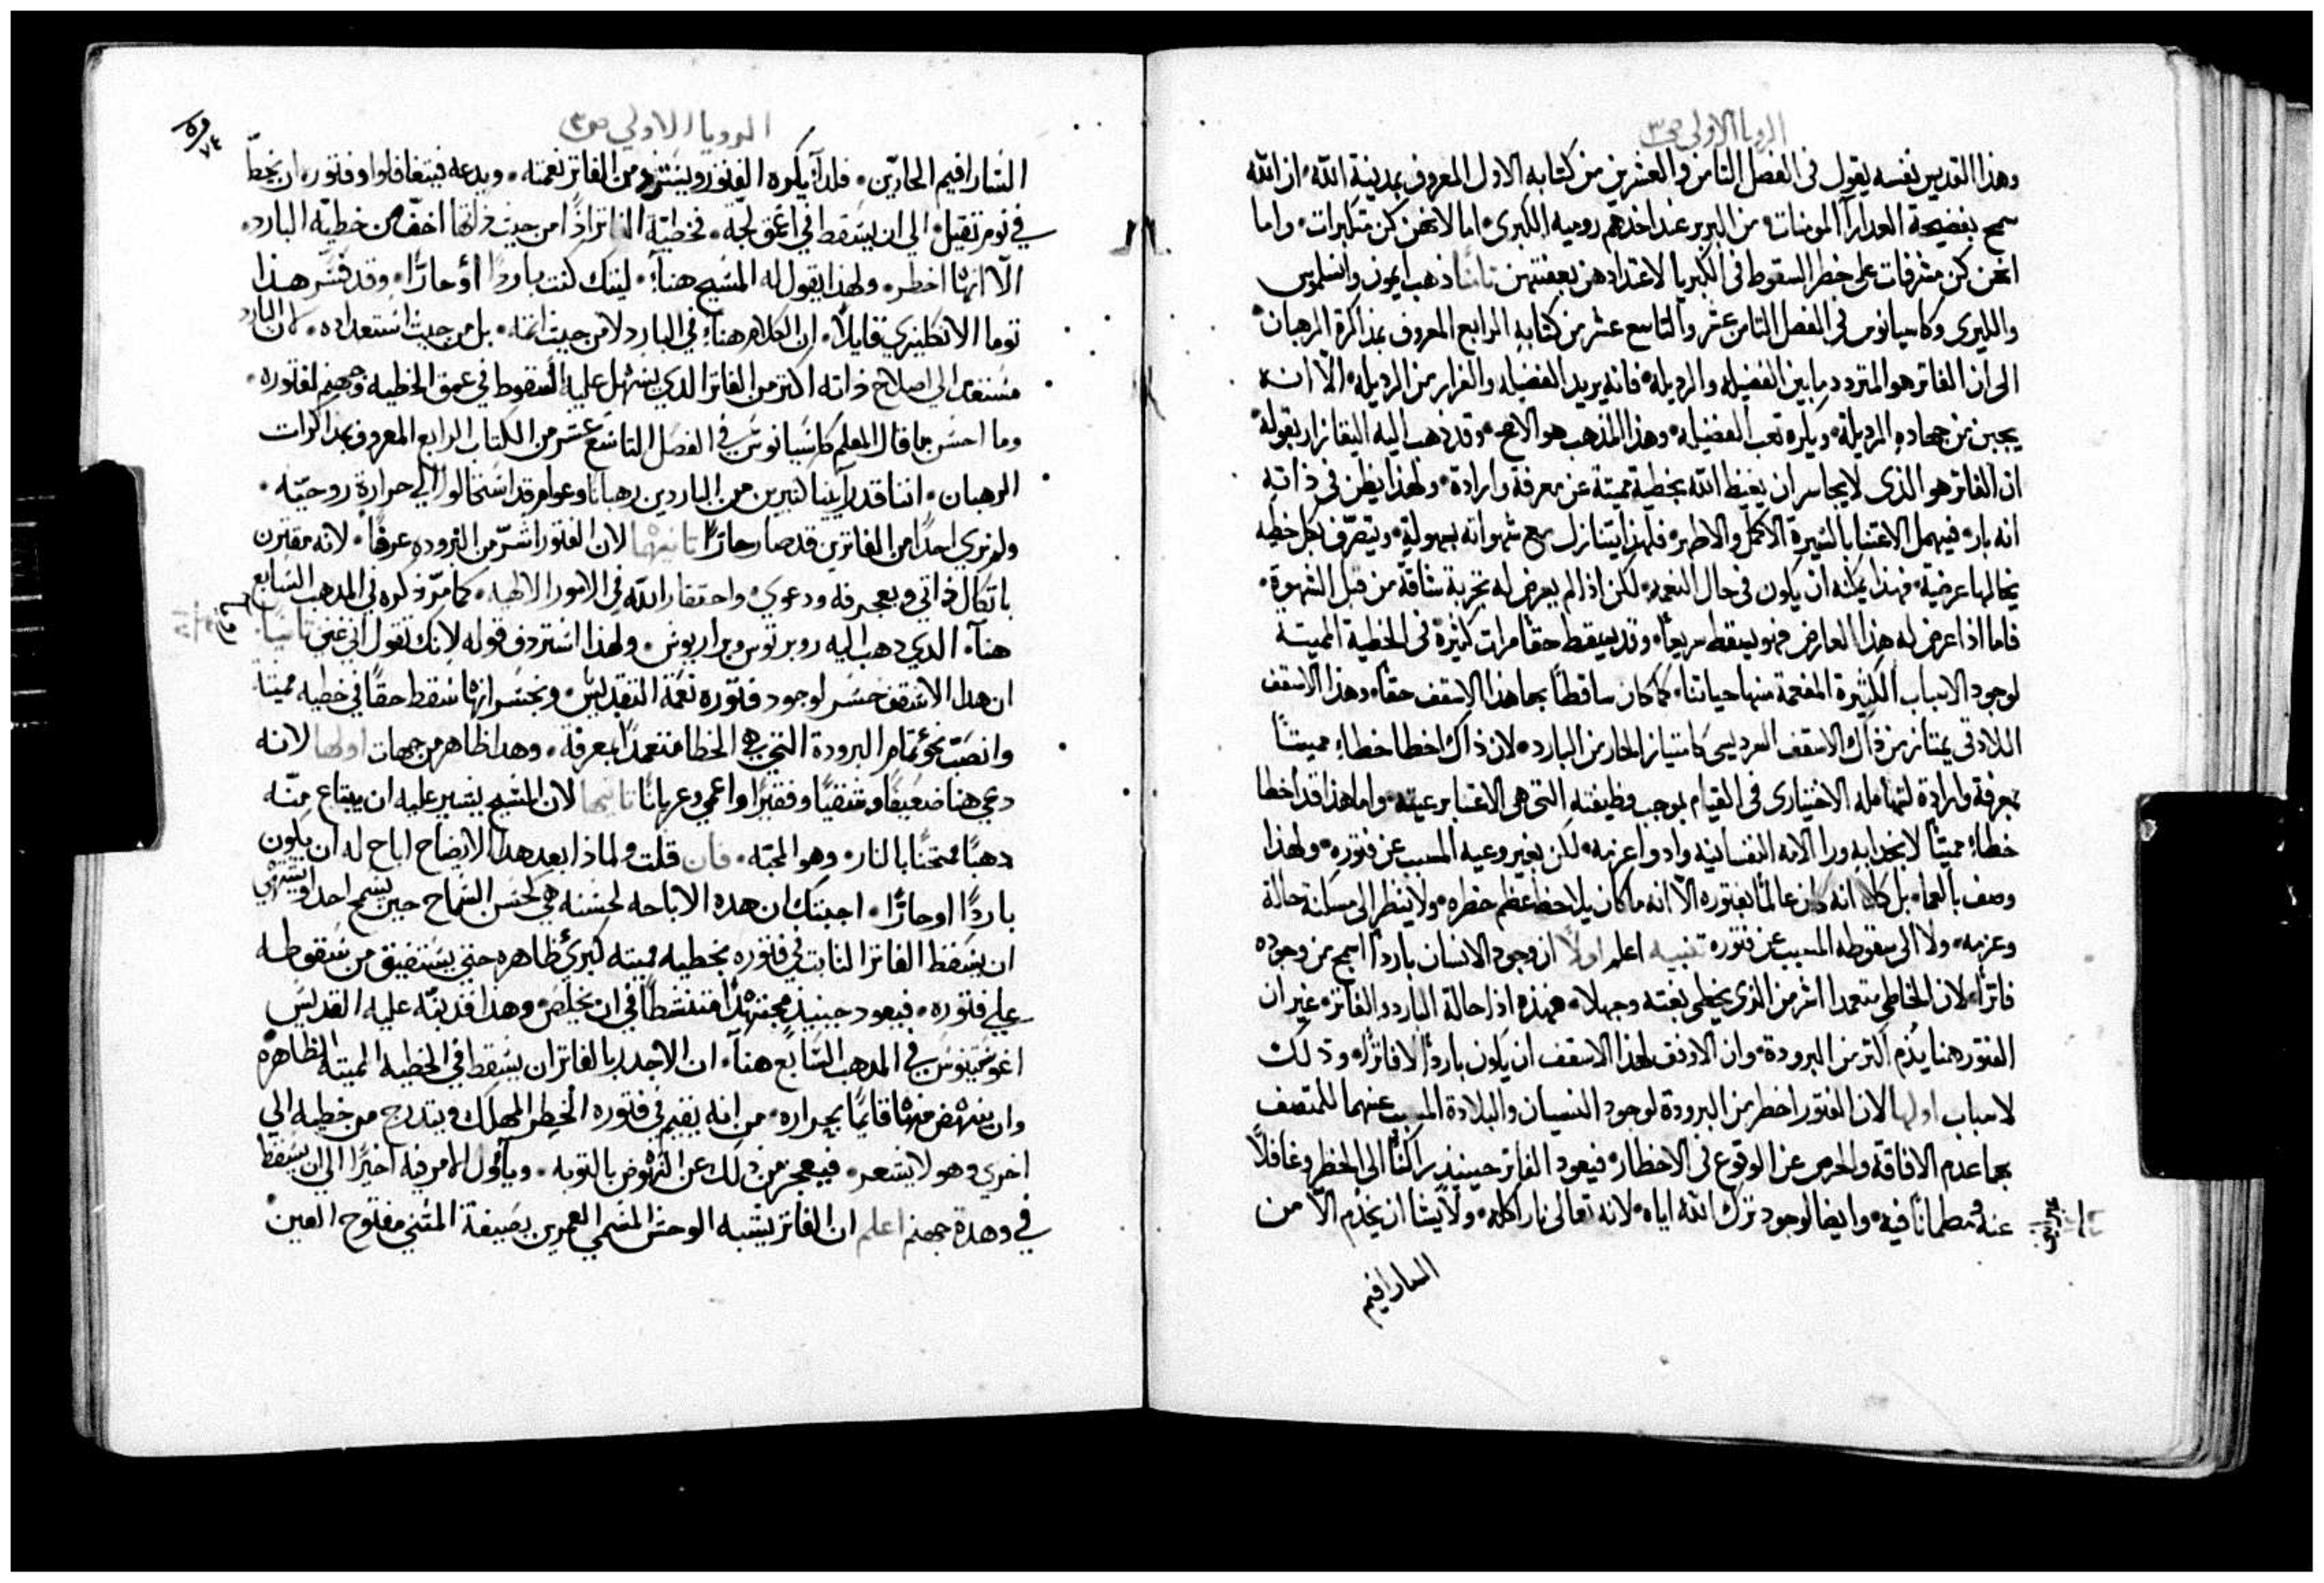 الرويا الاولي ص٣
وهذا القديس نفسه يقول في الفصل الثامن والعشرين من كتابه الاول المعروف بمدينة الله ان الله
سمح بفضيحة العدارآ المومنات من البربر عند اخذهم روميه الكبرى اما لانهن كن متكبرات واما
انهن كن مشرفات على خطر السقوط في الكبريا لاعتدادهن بعفتهن ثالثا ذهب ايمون وانسلموس
والليرى وكاسيانوس في الفصل الثامن عشر والتاسع عشر من كتابه الرابع المعروف بمذاكرة الرهبان
الى ان الفاتر هو المتردد ما بين الفضيله والرديلة فانه يريد الفضيله والفرار من الرديله الا انه
يجبن من جهاده الرديلة ويكره تعب الفضيله وهذا المذهب هو الاصح وقد ذهب اليه اليقازار بقوله
ان الفاتر هو الذى لا يجاسر ان يغيظ الله بخطية مميتة عن معرفة وارادة ولهذا يظن في ذاته
انه بار فيهمل الاعتنا بالسيرة الاكمل والاطهر فلهذا يتنازل مع شهواته بسهولة ويتصرف بكل خطيه
يخالها عرضية فهذا يمكنه ان يكون في حال النعمه لكن اذا لم يعرض له تجربة شاقة من قبل الشهوة
فاما اذا عرض له هذا العارض فهو يسقط سريعا وقد يسقط حقا مرات كثيرة في الخطية المميتة
لوجود الاسباب الكثيرة المفعمة منها حياتنا كما كان ساقطا بها هذا الاسقف حقا وهذا الاسقف
اللادقي يمتاز من ذاك الاسقف السرديسى كامتياز الحار من البارد لان ذاك اخطا خطاء مميتا
بمعرفة وارادة لتهامله الاختيارى في القيام بموجب وظيفته التي هي الاعتنا برعيته واما هذا قد اخطا
خطاء مميتا لانجدابه ورا الامه النفسانيه وادواعزمه لكن بغير وعيه المسبب عن فتوره ولهذا
وصف بالعما بل كان انه كان عالما بفتوره الا انه ما كان يلاحظ عظم خطره ولا ينظر الى مسكنة حالة
وعزمه ولا الى سقوطه المسبب عن فتوره تنبيه اعلم اولا ان وجود الانسان باردا اسمج من وجوده
فاترا لان الخاطي متعمدا اشر من الذى يخطى بغتة وجهلا فهذه اذا حالة البارد والفاتر غير ان
الفتور ههنا يذم اكثر من البرودة وان الاوفق لهذا الاسقف ان يكون باردا لا فاترا وذلك
لاسباب اولها لان الفتور اخطر من البرودة لوجود النسيان والبلادة المسبب عنهما للمتصف
بهما عدم الافاقة والحرص عن الوقوع في الاخطار فيعود الفاتر حينيذ راكنا الى الخطر وغافلا
عنه ومطمانا فيه وايضا لوجود ترك الله اياه لانه تعالى نار اكله ولا يشا ان يخدم الا من
السارافيم
الرويا الاولي ص٣
السارافيم الحادّين فلدا يكره الفتور ويسترد من الفاتر نعمته ويدعه فيتغافلوا وفتوره ان يحطّ
في نوم تقيل الي ان يسقط في اعمق لجّه فخطية الفاتر اذًا من حيث ذاتها اخفّ من خطيّه البارد
الّا انها اخطر ولهذا يقول له المسيح هنا ليتك كنت باردا أو حارًّا وقد فسّر هذا
توما الانكليزي قايلًا ان الكلام هنا في البارد لا من حيث اثمه بل من حيث استعداده لان البارد
مستعد الي اصلاح ذاته اكتر من الفاتر الدي يسهل عليه السقوط في عمق الخطيه وجحيم لفتوره
وما احسن ما قال المعلم كاسيانوس في الفصل التاسع عشر من الكتاب الرابع المعروف بمداكرات
الرهبان اننا قد راينا كتيرين من الباردين رهبانا وعوام قد استحالوا الي حرارة روحيّه
ولم نري احدًا من الفاترين قد صار حارًّا ثانيها لان الفتور اشرّ من البروده عرضًا لانه مقترن
باتكال ذاتي وبعجرفه ودعوي واحتقار الله في الامور الالهيه كما مرّ ذكره في المدهب السابع
هنا الدي دهب اليه روبرتوس وبراريوس ولهذا استردف قوله لانك تقول اني غني ثالثا
ان هدا الاسقف خسر لوجود فتوره نعمة التقديس وبخسرانها سقط حقًا في خطيه مميتة
وانصبّ نحو تمام البرودة التي هي الخطا متعمدًا بمعرفة وهدا ظاهر من جهات اولها لانه
دعي هنا ضعيفًا وشقيًا وفقيرًا واعمي وعريانًا ثانيها لان المسيح يشير عليه ان يبتاع منّه
دهبًا ممتحنًا بالنار وهو المحبّه فان قلت ولماذا بعد هدا الايضاح اباح له ان يكون
باردًا او حارًّا اجبتك ان هده الاباحه لحسنه هي كحسن السماح حين يسمح احد او يشتهي
ان يسقط الفاتر الثابت في فتوره بخطيه مميته كبري ظاهره حتي يستفيق من سقوطه
علي فتوره فيعود حينيد مجتهدًا متنشطًا في ان يخلص وهدا قد نبّه عليه القديس
اغوستينوس في المدهب السابع هنا ان الاجدر بالفاتر ان يسقط في الخطيه المميته الظاهرة
وان ينهض منها قايمًا بحراره من انه يقيم في فتوره الخطر المهلك ويتدرج من خطيه الي
اخري وهو لا يشعر فيعجز من دلك عن النهوض بالتوبه ويأول الامر فيه اخيرًا الي ان يسقط
في وهدة جهنم اعلم ان الفاتر يشبه الوحش المسمي العمرين بصيغة المثني مفتوح العين